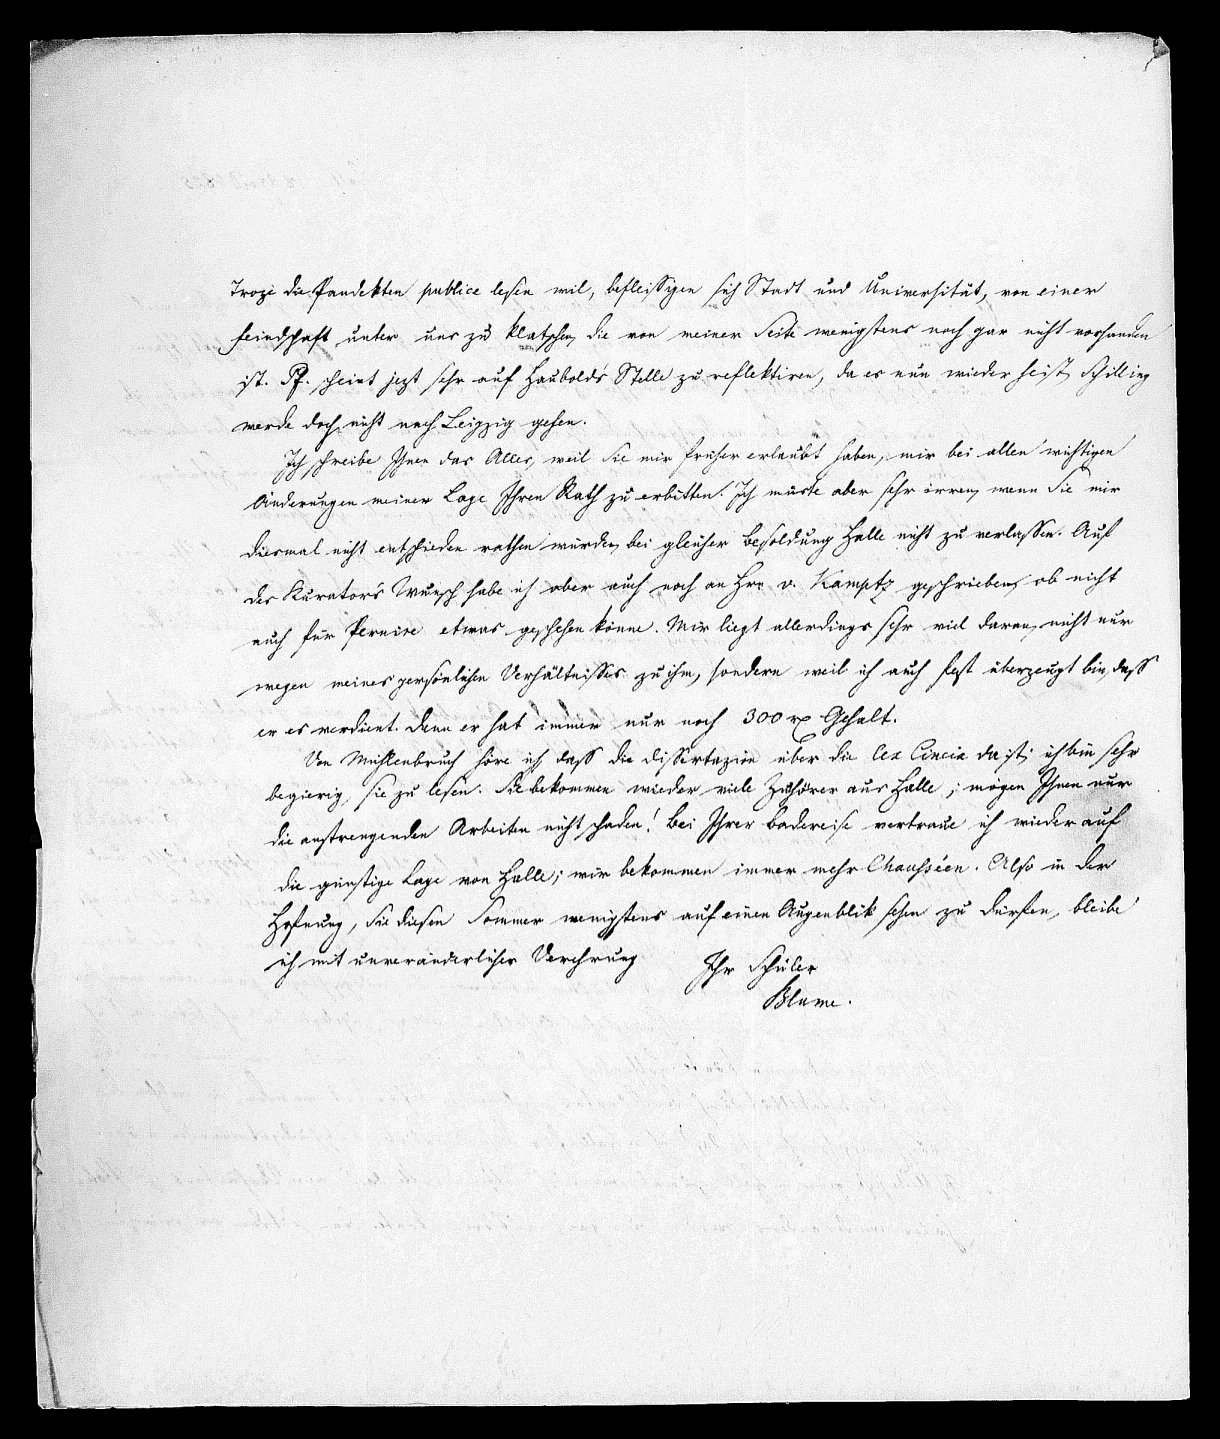 Troze die Pandekten publice lesen wil, befleissigen sich Stadt und Universität, von einer
Feindschaft unter uns zu klatschen, die von meiner Seite wenigstens noch gar nicht vorhanden
ist. Pf. scheint jezt sehr auf Haubolds Stelle zu reflektiren, da es nun wieder heist, Schilling
werde doch nicht nach Leipzig gehen.
Ich schreibe Ihnen das Alles, weil Sie mir früher erlaubt haben, mir bei allen wichtigen
Änderungen meiner Lage Ihren Rath zu erbitten. Ich müste aber sehr irren, wenn Sie mir
diesmal nicht entschieden rathen würden, bei gleicher Besoldung Halle nicht zu verlassen. Auf
des Kurators Wunsch habe ich aber auch noch an Hrn v. Kamptz geschrieben, ob nicht
auch für Pernice etwas geschehen könne. Mir liegt allerdings sehr viel daran, nicht nur
wegen meines persönlichen Verhältnisses zu ihm, sondern weil ich auch fest überzeugt bin, dass
er es verdient. Denn er hat immer nur noch 300 rx Gehalt.
Von Mühlenbruch höre ich dass die Dissertazion über die lex Cincia da ist; ich bin sehr
begierig, sie zu lesen. Sie bekommen wieder viele Zuhörer aus Halle; mögen Ihnen nur
die anstrengenden Arbeiten nicht schaden! Bei Ihrer Badereise vertraue ich wieder auf
die günstige Lage von Halle; wir bekommen immer mehr Chausséen. Also in der
Hofnung, Sie diesen Sommer wenigstens auf einen Augenblik sehen zu dürfen, bleibe
ich mit unveränderlicher Verehrung Ihr Schüler
Blume.